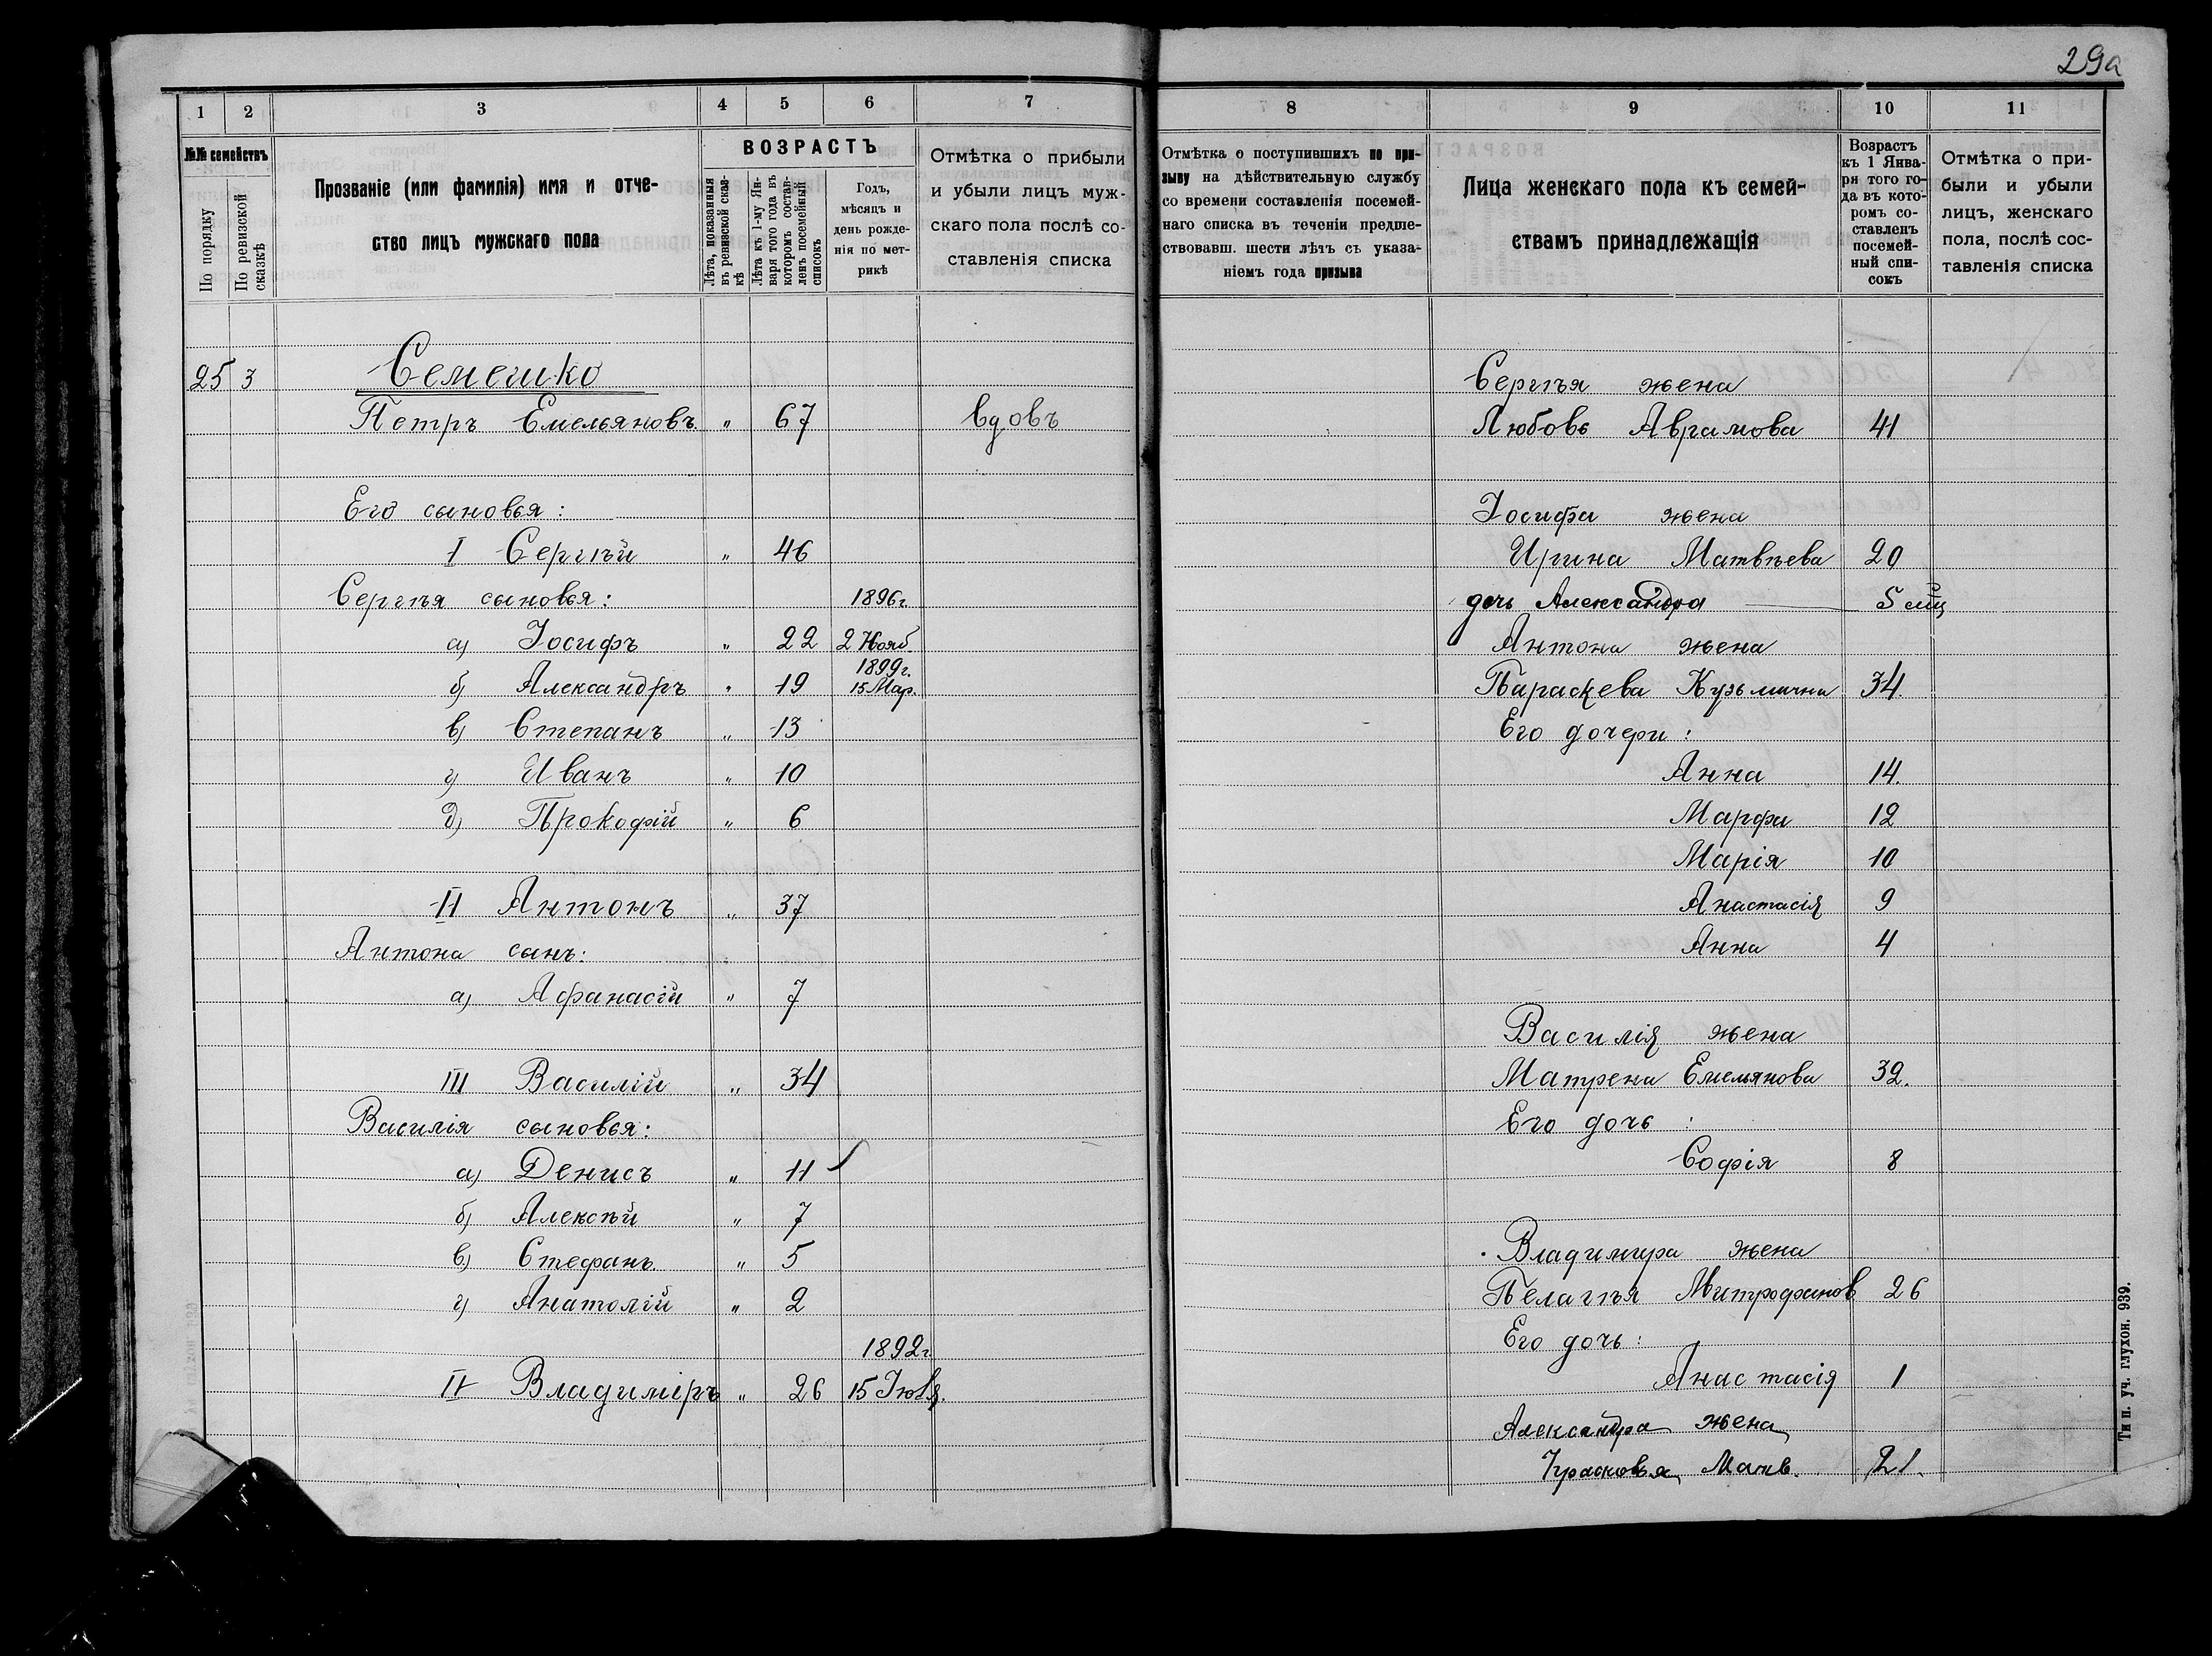 29а
1 2 3 4 5 6 7
№№ семействъ
По порядку
По ревизской сказкѣ
Прозваніе (или фамилія) имя и отче-
ство лицъ мужского пола
ВОЗРАСТЪ
Лѣта, показанныя
въ ревизской сказ-
кѣ
Лѣта къ 1-му Ян-
варя того года въ
которомъ состав-
ленъ посемейный
списокъ
Годъ,
мѣсяцъ и
день рожде-
нія по мет-
рикѣ
Отмѣтка о прибыли
и убыли лицъ муж-
скаго пола послѣ со-
ставленія списка
25 3 Семешко
Петръ Емельяновъ „ 67 вдовъ
Его сыновья:
I Сергѣй „ 46
Сергѣя сыновья: 1896г.
а) Іосифъ „ 22 2 Нояб.
1899г.
б) Александръ „ 19 15 Мар.
в) Степанъ „ 13
г) Иванъ „ 10
д) Прокофій „ 6
II Антонъ „ 37
Антона сынъ:
а) Афанасій „ 7
III Василій „ 34
Василія сыновья:
а) Денисъ „ 11
б) Алексѣй „ 7
в) Стефанъ „ 5
г) Анатолій „ 2
1892г.
IV Владиміръ „ 26 15 Іюля.
8 9 10 11
Отмѣтка о поступившихъ по при-
зыву на дѣйствительную службу
со времени составленія посемей-
наго списка въ теченіи предше-
ствовавш. шести лѣтъ съ указа-
ніемъ года призыва
Лица женскаго пола къ семей-
ствамъ принадлежащія
Возрастъ
къ 1 Янва-
ря того го-
да въ кото-
ромъ со-
ставленъ
посемей-
ный спи-
сокъ
Отмѣтка о при-
были и убыли
лицъ, женскаго
пола, послѣ сос-
тавленія списка
Сергѣя жена
Любовь Аврамова 41
Іосифа жена
Ирина Матвѣева 20
дочь Александра 5 мц
Антона жена
Параскева Кузьмична 34
Его дочери:
Анна 14.
Марфа 12
Марія 10
Анастасія 9
Анна 4
Василія жена
Матрена Емельянова 32.
Его дочь:
Софія 8
Владимира жена
Пелагѣя Митрофанов 26
Его дочь:
Анастасія 1
Александра жена
Прасковья Матв. 21.
Тип. уч. глухон. 939.